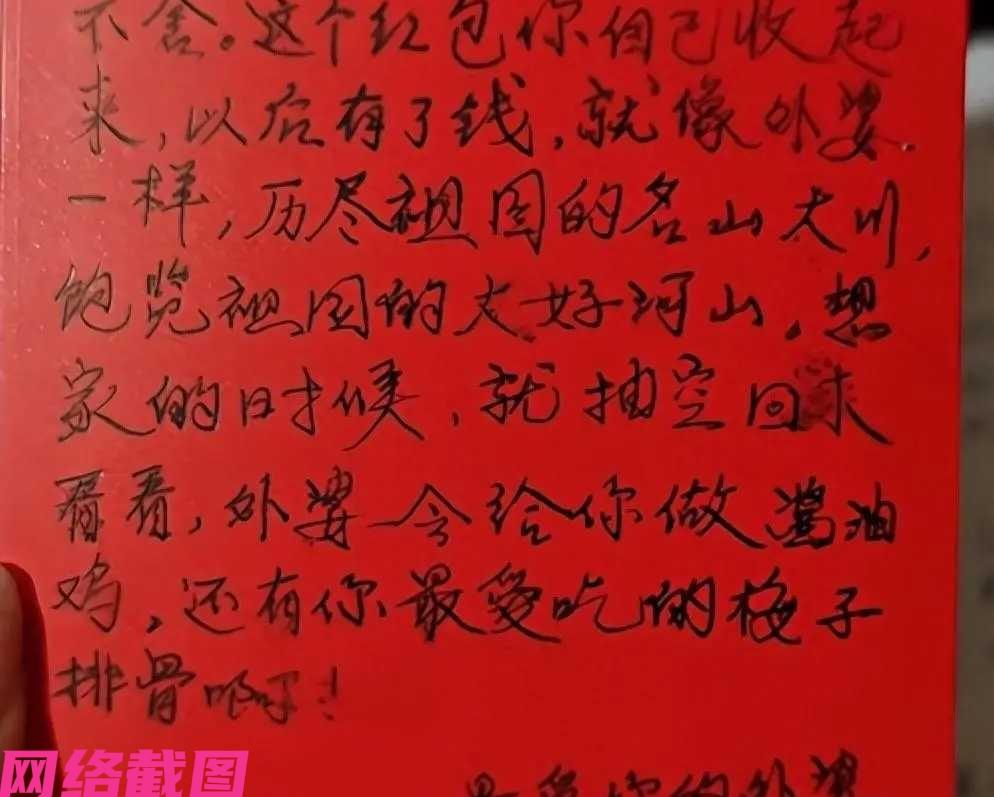 不舍。这个红包你自己收起
来，以后有了钱，就像外婆
一样，历尽祖国的名山大川，
饱览祖国的大好河山，想
家的时候，就抽空回来
看看，外婆会给你做酱油
鸡，还有你最爱吃的梅子
排骨啊！
最爱你的外婆
网络截图